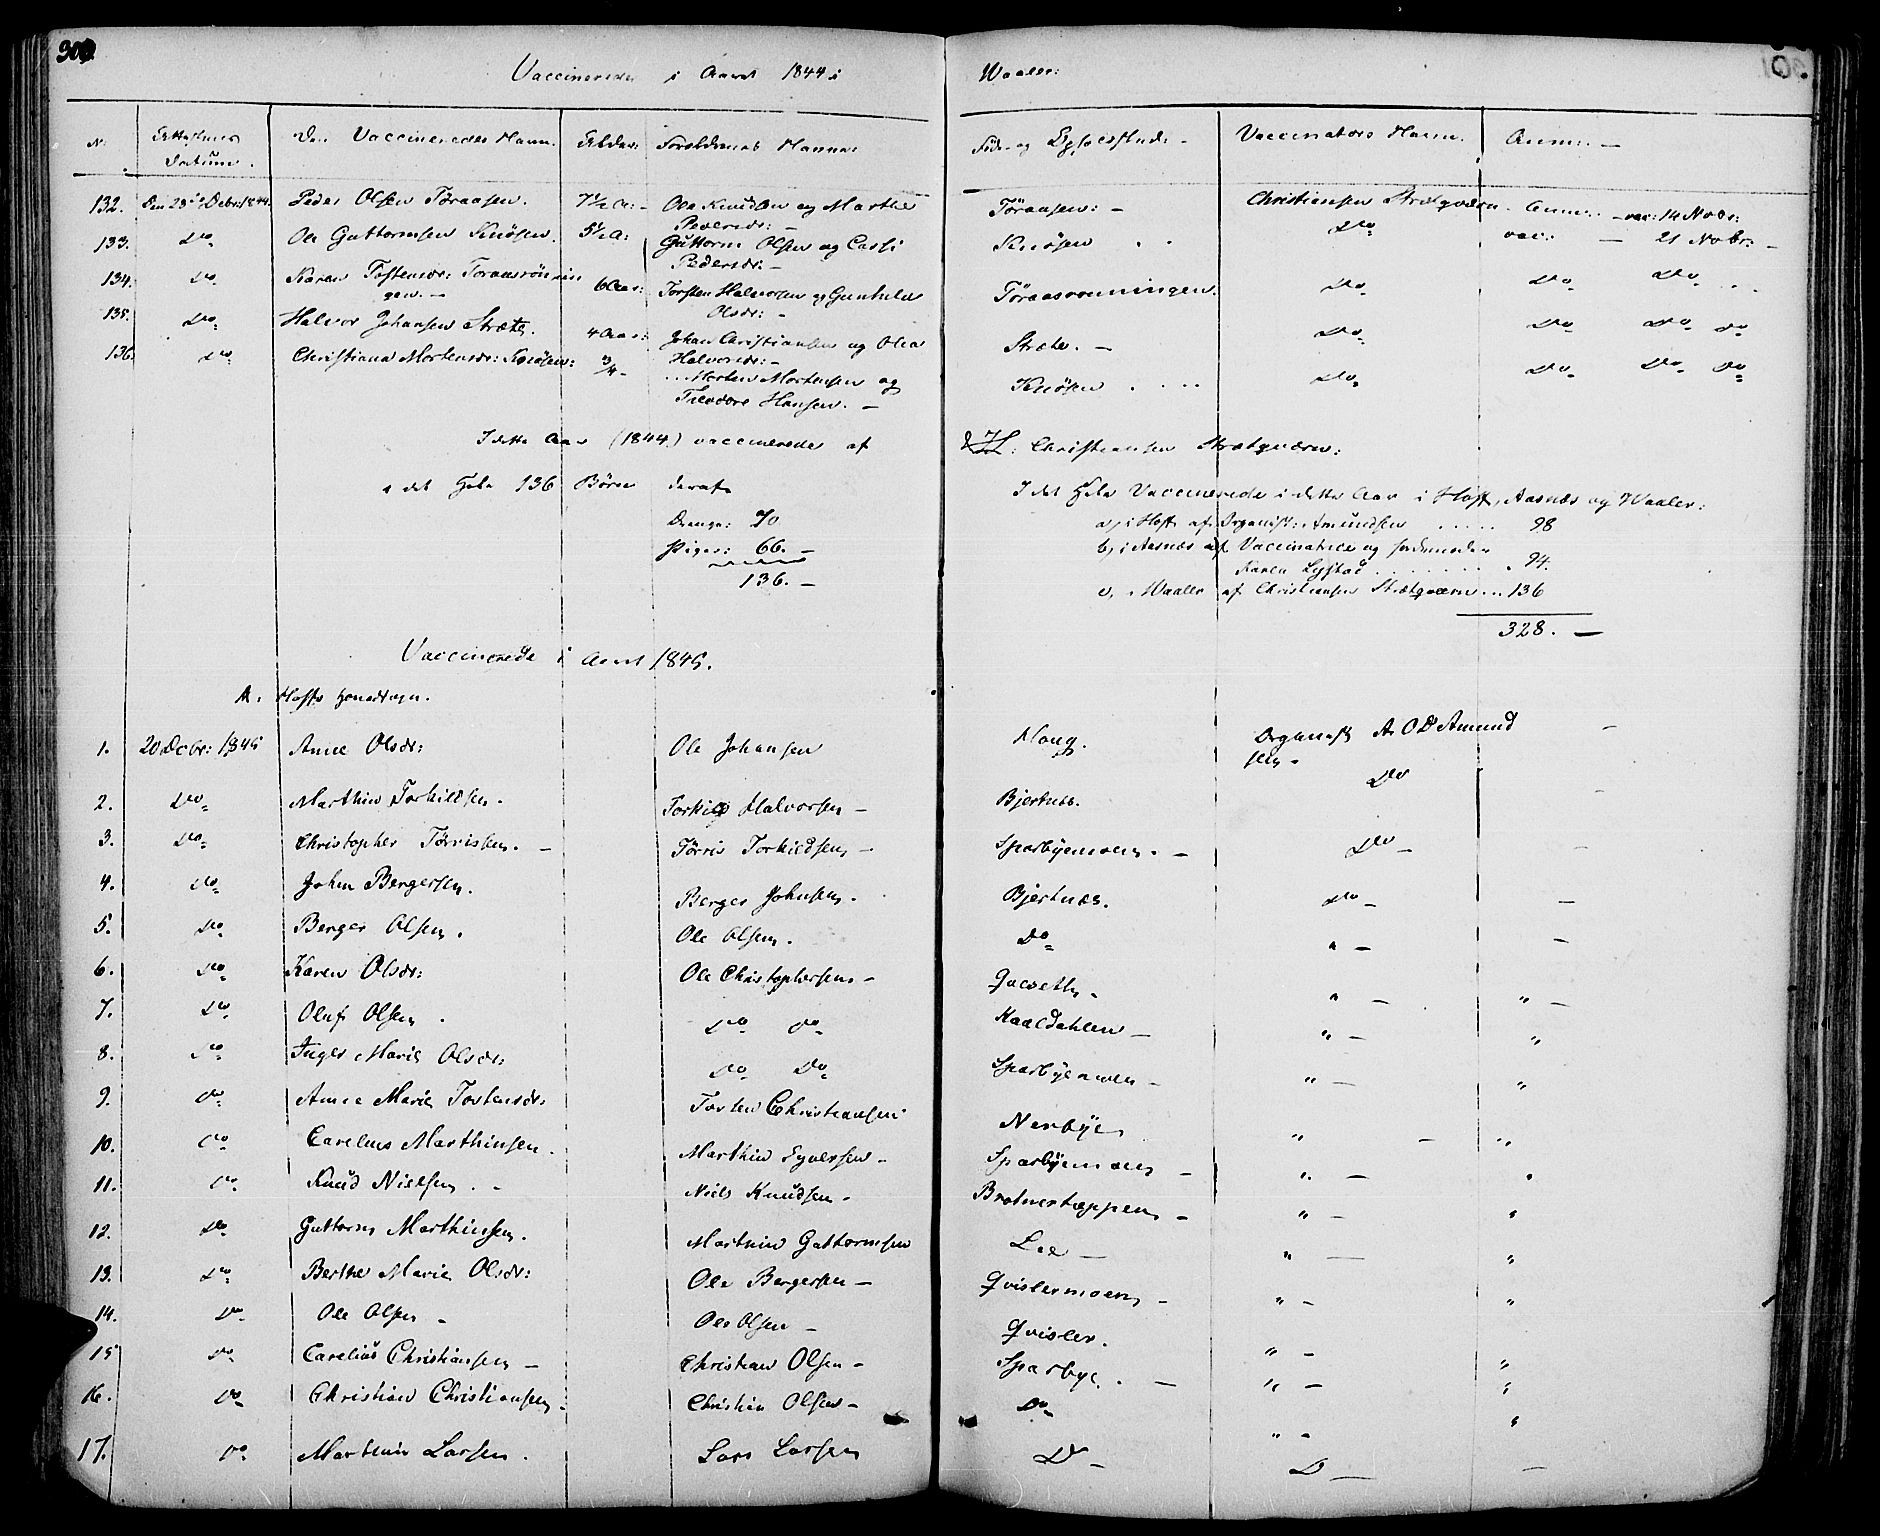 300.
Vaccinerede i Aaret 1844 i Waaler:
No. Attesternes Datum. Den Vaccineredes Navn. Alder: Forældrenes Navne: Føde- og Opholdssted - Vaccinators Navn. Anm: -
132. Den 23de Debr: 1844. Peder Olsen Töraasen. 7½ A: - Ole Knudsen og Marthe Pedersdr: - Töraasen: - Christiansen Strætqværn - Anm: - vac: 14 Novbr:
133. Do Ole Guttormsen Knösen. 5½ A: Guttorm Olsen og Cassi Pedersdr: - Knösen . . Do vac: - 21 Nobr: -
134. Do Karen Tostensdr: Toraasrönningen. - 6 Aar: Torsten Halvorsen og Gunhild Olsdr: - Töraasrönningen. Do Do Do
135. Do Halvor Johansen Stræte. 4 Aar: Johan Christiansen og Olea Halvorsdr: - Stræte. - Do Do Do Do
136. Do Christiana Mortensdr: Knösen: ¾ - Morten Mortensen og Theodore Hansen. - Knösen . . . . Do Do Do Do
I dette Aar (1844) vaccinerede af Christiansen Strætqværn:
i det Hele 136 Börn deraf
Drenge: 70
Piger: 66. -
136. -
I det Hele Vaccinerede i dette Aar i Hoff, Aasnæs og Waaler:
a, i Hoff af Organist: Amundsen . . . . . 98
b, i Aasnæs af Vaccinatrice og Jordmoder Karen Lystad . . . . . . . 94.
c, i Waaler af Christiansen Strætqværn . . . 136
328. -
Vaccinerede i Aaret 1845.
A. Hoffs Hovedsogn.
1. 20 Dcbr: 1845 Anne Olsdr: Ole Johansen Houg. Organist A. O D Amundsen - -
2. Do Marthin Torkildsen. Torkild Halvorsen - Bjertnes. Do -
3. Do Christopher Törrissen. - Törris Torkildsen - Sparbyemoen. - Do - -
4. Do Johan Bergersen. Berger Johnsen. Bjertnæs. Do - -
5. Do Berger Olsen. Ole Olsen. Do " - -
6. Do Karen Olsdr: Ole Christophersen - " - " -
7. Do Oluf Olsen . Do Do Kaaldahlen - " - "
8. Do Inger Marie Olsdr: Do Do Sparbyemoen - " - "
9. Do Anne Marie Torstensdr: Torsten Christiansen Nerbye " - "
10. Do Carelius Marthinsen. Marthin Syversen - Sparbyemoen - " - "
11. Do Knud Nielsen. - Niels Knudsen - Bratnertæppen - " - "
12. Do Guttorm Marthinsen. Marthin Guttormsen Lie - " - "
13. Do Berthe Marie Olsdr: Ole Bergersen - Qvislermoen - " - "
14. Do Ole Olsen - Ole Olsen - Qvisler. " - "
15 Do Carelius Christiansen - Christian Olsen - Sparbye. - " - "
16. Do Christian Christiansen: Christian Olsen - Do " - "
17. Do Marthin Larsen. Lars Larsen D - D - -